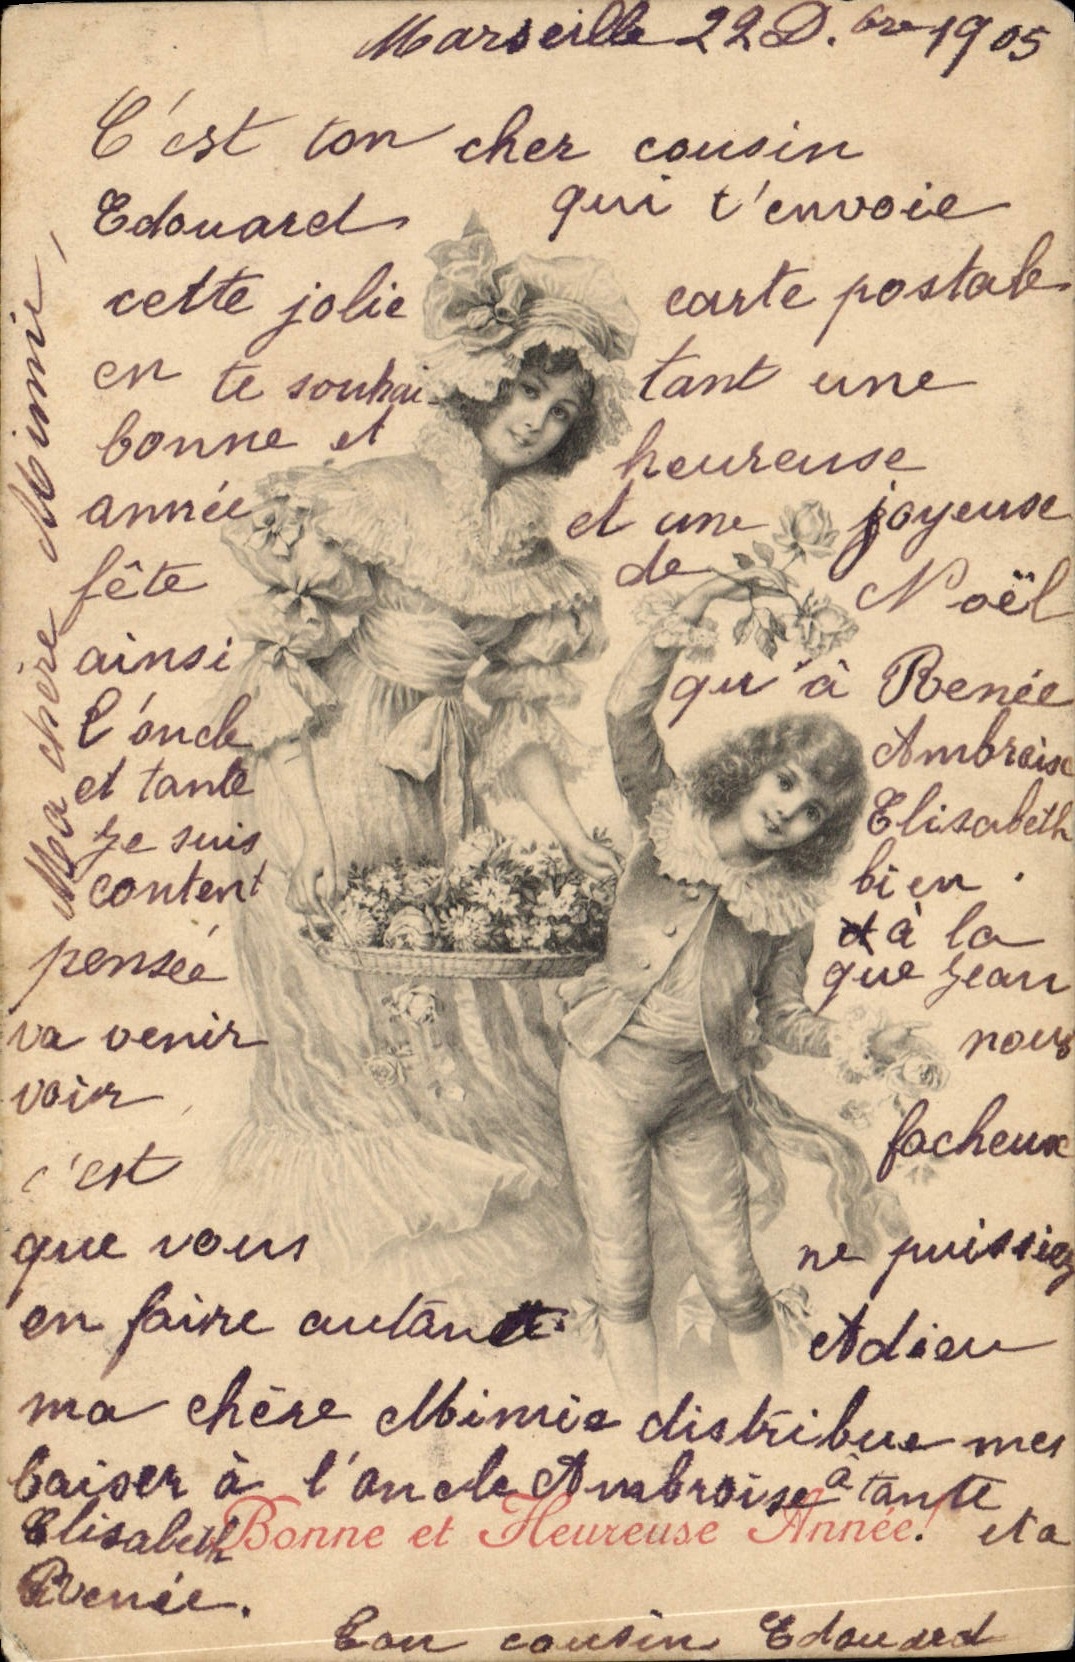 Marseille 22 D.bre 1905
Ma chère Mimie,
C'est ton cher cousin
Edouard qui t'envoie
cette jolie carte postale
en te souhai tant une
bonne et heureuse
année et une joyeuse
fête de Noël
ainsi qu'à Renée
l'oncle Ambroise
et tante Elisabeth
Je suis bien
content à la
pensée que Jean
va venir nous
voir
c'est facheux
que vous ne puissiez
en faire autant. Adieu
ma chère Mimie distribue mes
baiser à l'oncle Ambroise à tante
Elisabeth et a
Bonne et Heureuse Année!
Renée.
Ton cousin Edouard